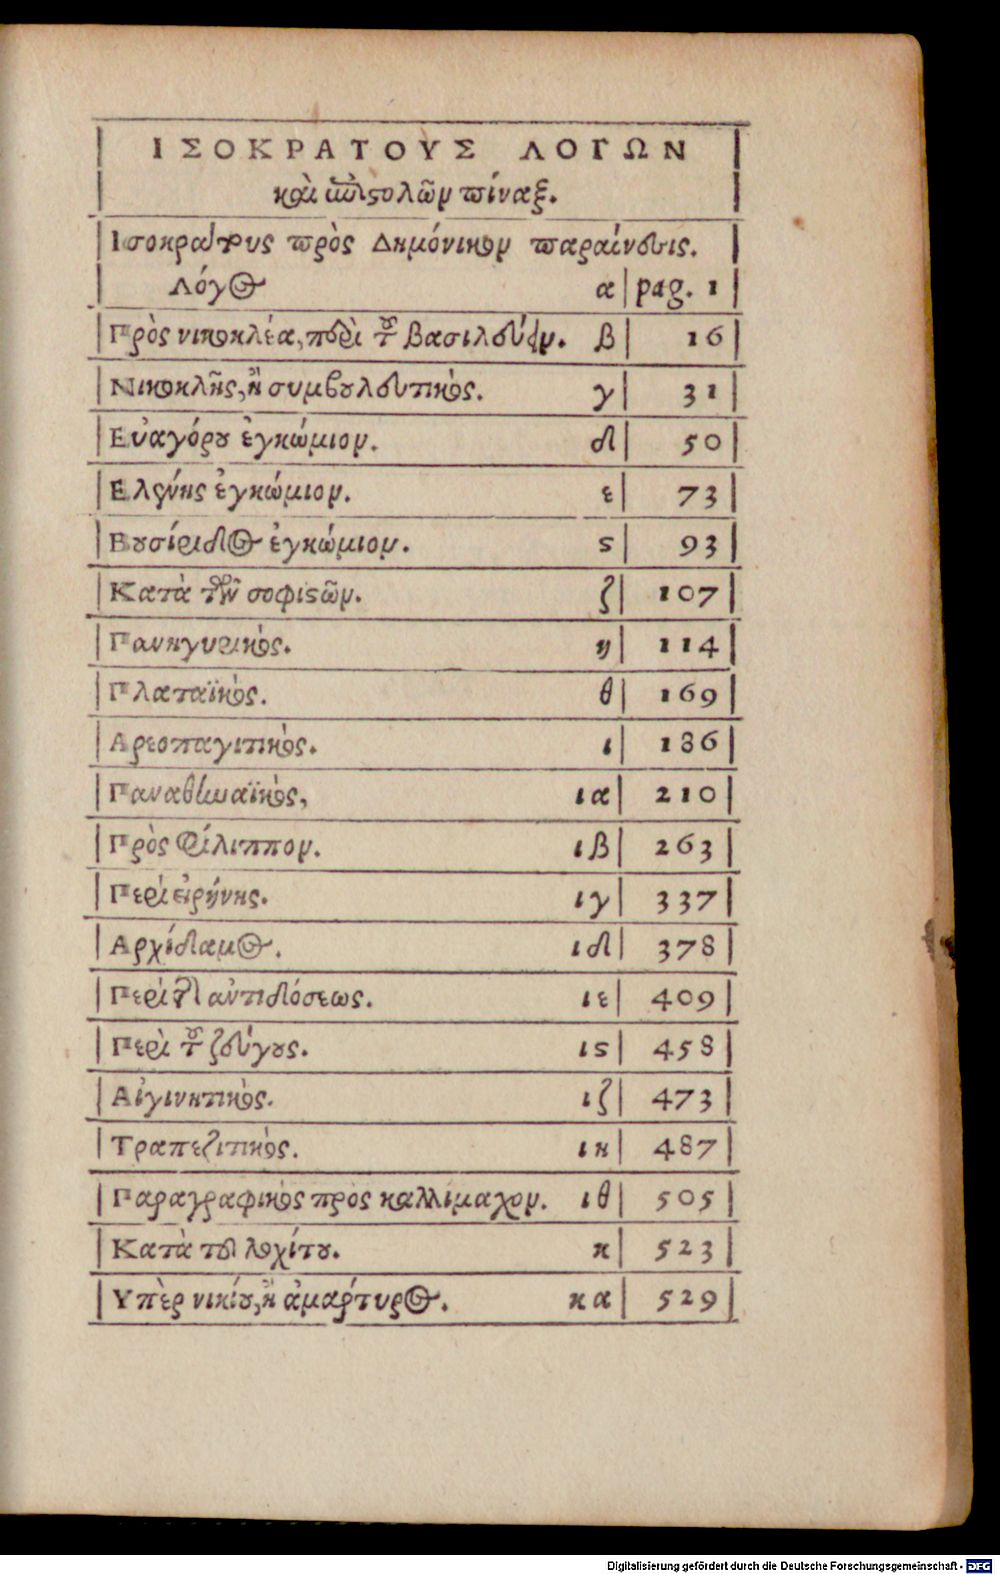 ΙΣΟΚΡΑΤΟΥΣ ΛΟΓΩΝ
καὶ ἐπιστολῶν πίναξ.
Ισοκράτους πρὸς Δημόνικον παραίνεσις.
Λόγος α pag. 1
Πρὸς νικοκλέα, περὶ τοῦ βασιλεύειν. β 16
Νικοκλῆς, ἢ συμβουλευτικός. γ 31
Εὐαγόρου ἐγκώμιον. δ 50
Ελένης ἐγκώμιον. ε 73
Βουσίριδος ἐγκώμιον. ϛ 93
Κατὰ τῶν σοφιστῶν. ζ 107
Πανηγυρικός. η 114
Πλαταϊκός. θ 169
Αρεοπαγιτικός. ι 186
Παναθηναϊκός, ια 210
Πρὸς Φίλιππον. ιβ 263
Περὶ εἰρήνης. ιγ 337
Αρχίδαμος. ιδ 378
Περὶ τῆς ἀντιδόσεως. ιε 409
Περὶ τοῦ ζεύγους. ιϛ 458
Αἰγινητικός. ιζ 473
Τραπεζιτικός. ιη 487
Παραγραφικὸς πρὸς καλλίμαχον. ιθ 505
Κατὰ τοῦ λοχίτου. κ 523
Υπὲρ νικίου, ἢ ἀμάρτυρος. κα 529
Digitalisierung gefördert durch die Deutsche Forschungsgemeinschaft - DFG